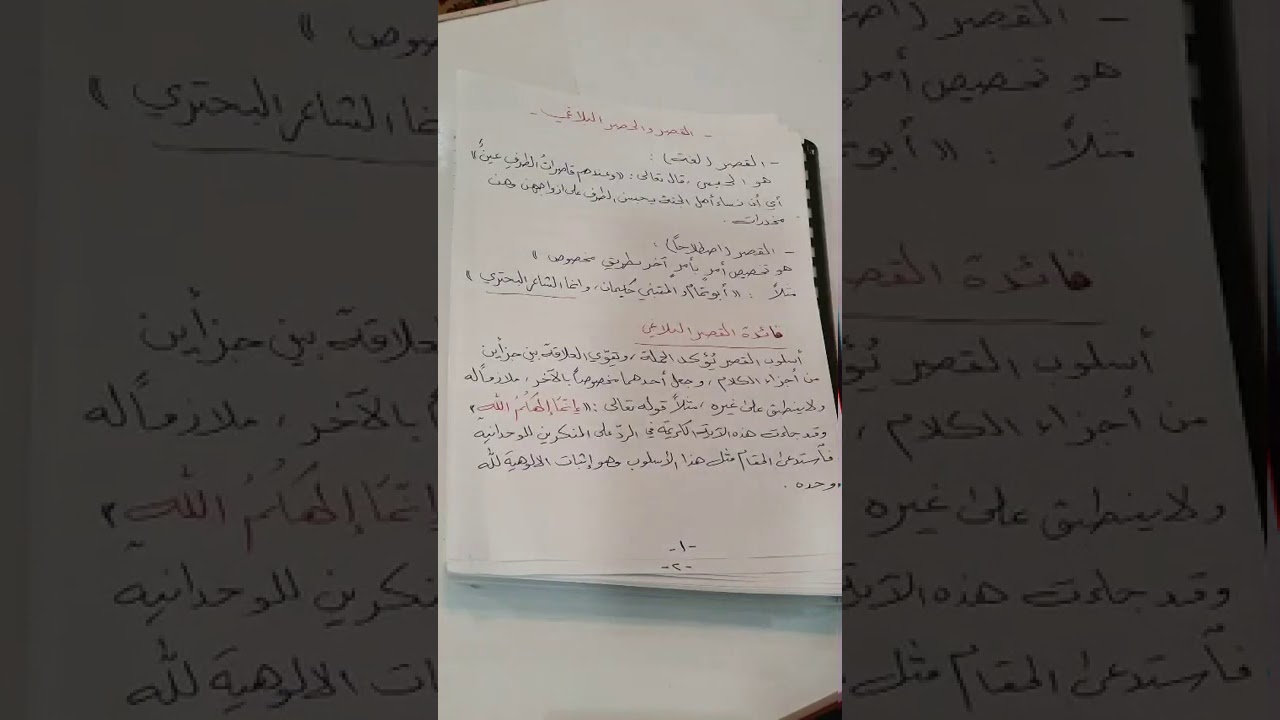 - القصر والحصر البلاغي -
- القصر (لغة) :
هو الحبس ، قال تعالى : «وعندهم قاصراتُ الطرفِ عينٌ»
أي أن نساء أهل الجنة يحبسن الطرف على أزواجهن وهن
مخدرات .
- القصر (اصطلاحاً) :
هو تخصيص أمر بأمرٍ آخر بطريق مخصوص "
مثلاً : «أبو تمام والمتنبي حكيمان ، وإنما الشاعر البحتري»
فائدة القصر البلاغي
أسلوب القصر يُؤكد الجملة ، ويقوّي العلاقة بين جزأين
من أجزاء الكلام ، وجعل أحدهما مخصوصاً بالآخر ، ملازماً له
ولا ينطبق على غيره ، مثلاً قوله تعالى : «إنّما إلهكُمُ الله»
وقد جاءت هذه الآية الكريمة في الردّ على المنكرين للوحدانية
فاستدعى المقام مثل هذا الأسلوب وهو إثبات الالوهية لله
وحده .
-١-
-٢-